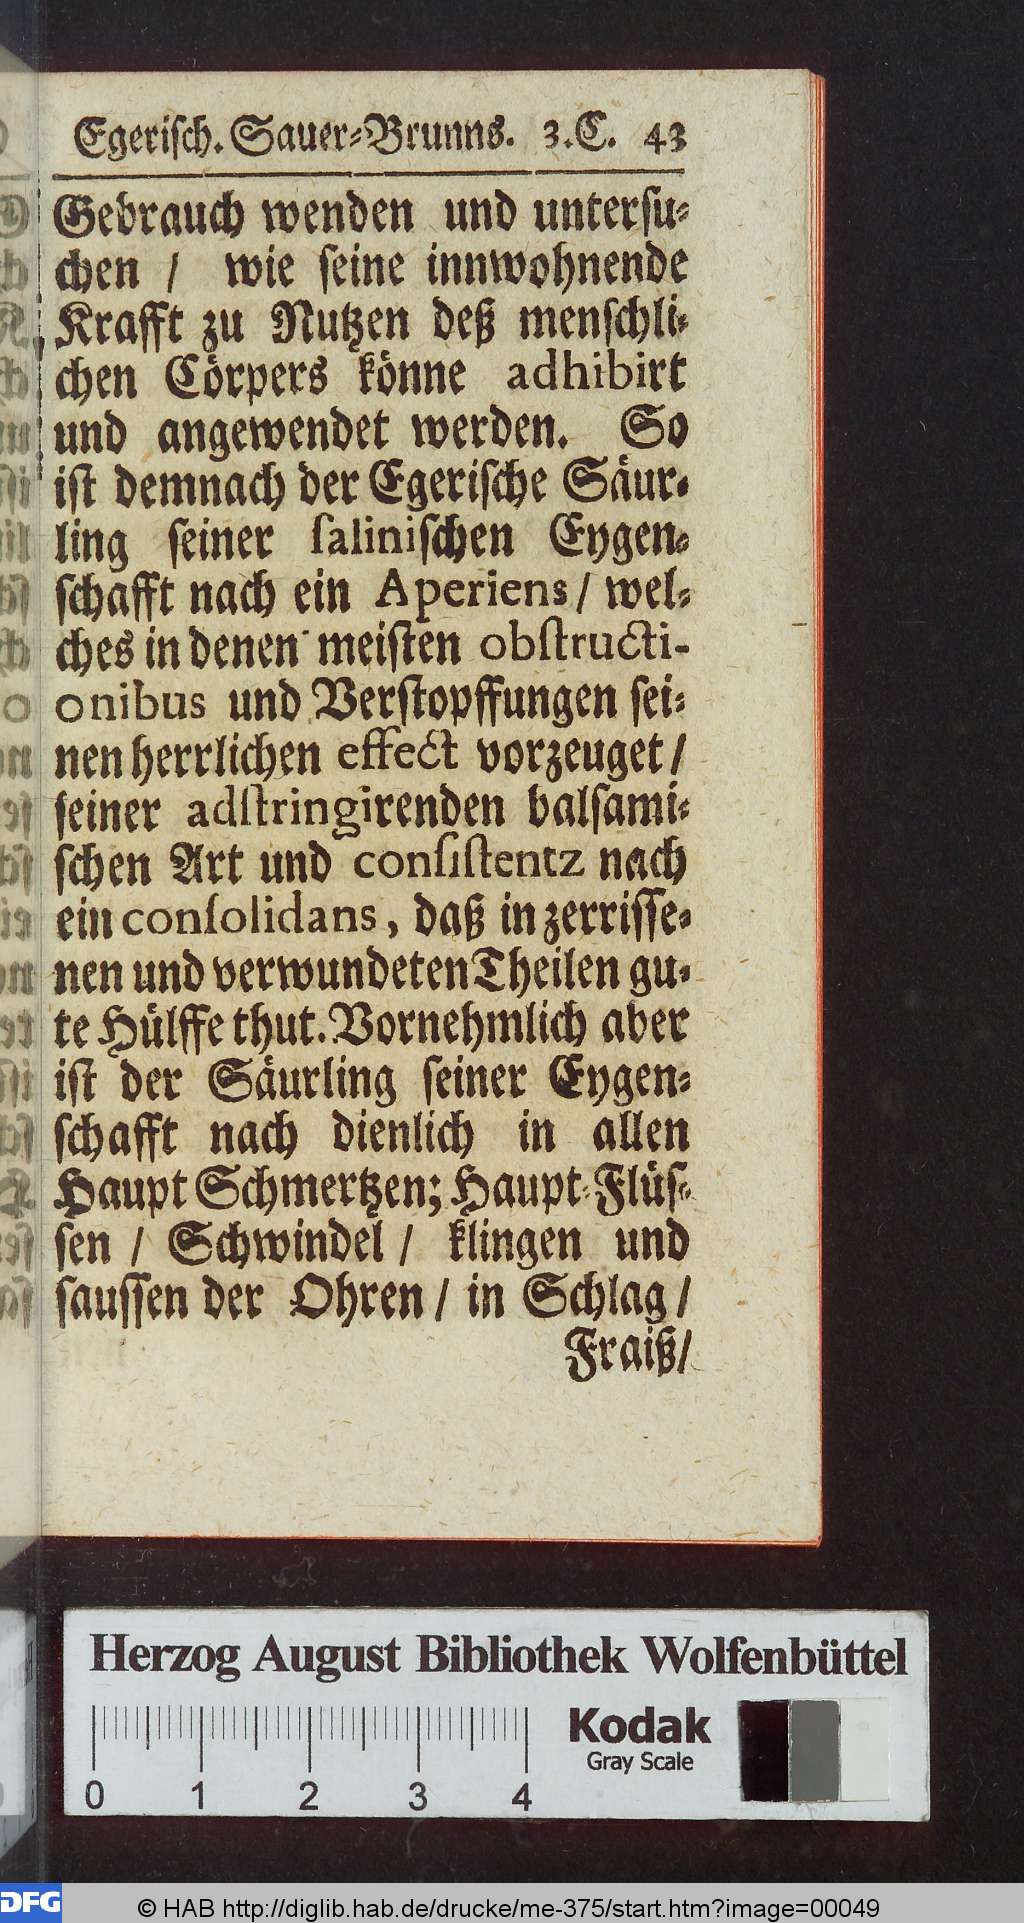 Egerisch. Sauer-Brunns. 3.C. 43
Gebrauch wenden und untersu-
chen / wie seine innwohnende
Krafft zu Nutzen deß menschli-
chen Cörpers könne adhibirt
und angewendet werden. So
ist demnach der Egerische Säur-
ling seiner salinischen Eygen-
schafft nach ein Aperiens / wel-
ches in denen meisten obstructi-
onibus und Verstopffungen sei-
nen herrlichen effect vorzeuget /
seiner adstringirenden balsami-
schen Art und consistentz nach
ein consolidans, daß in zerrisse-
nen und verwundeten Theilen gu-
te Hülffe thut. Vornehmlich aber
ist der Säurling seiner Eygen-
schafft nach dienlich in allen
Haupt Schmertzen; Haupt-Flüs-
sen / Schwindel / klingen und
saussen der Ohren / in Schlag /
Fraiß /
Herzog August Bibliothek Wolfenbüttel
Kodak
Gray Scale
0 1 2 3 4
DFG
© HAB http://diglib.hab.de/drucke/me-375/start.htm?image=00049